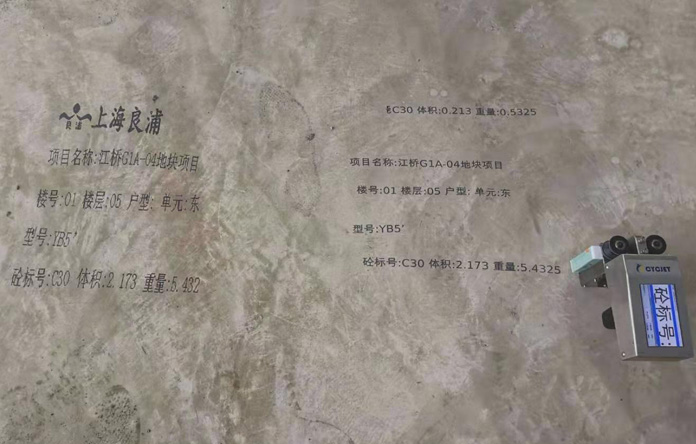 良浦 上海良浦
项目名称:江桥G1A-04地块项目
楼号:01 楼层:05 户型: 单元:东
型号:YB5'
砼标号:C30 体积:2.173 重量:5.432
C30 体积:0.213 重量:0.5325
项目名称:江桥G1A-04地块项目
楼号:01 楼层:05 户型: 单元:东
型号:YB5'
砼标号:C30 体积:2.173 重量:5.4325
CYCJET
砼标号: